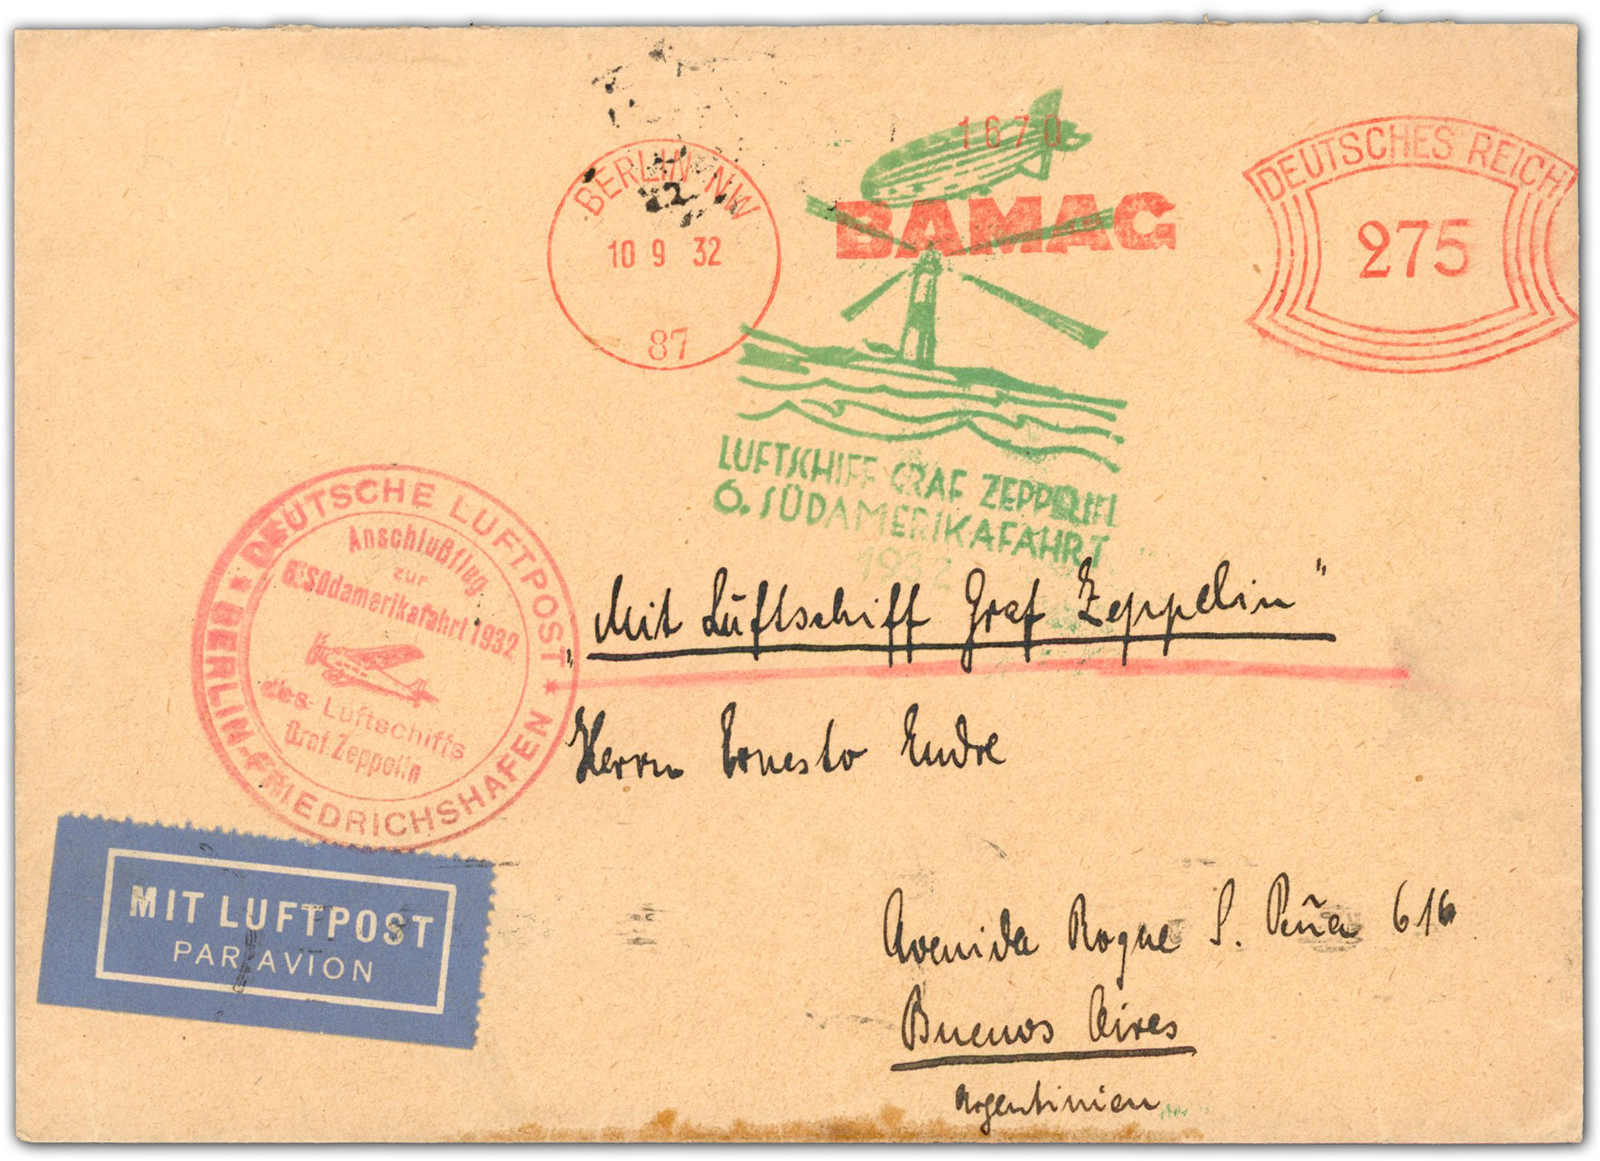 1670
BERLIN NW
10 9 32
87
BAMAG
DEUTSCHES REICH
275
LUFTSCHIFF GRAF ZEPPELIN
6. SÜDAMERIKAFAHRT
1932
* DEUTSCHE LUFTPOST *
BERLIN-FRIEDRICHSHAFEN
Anschlußflug
zur
6. Südamerikafahrt 1932
des Luftschiffs
Graf Zeppelin
„Mit Luftschiff Graf Zeppelin"
Herrn Ernesto Endre
Avenida Roque S. Peña 616
Buenos Aires
Argentinien
MIT LUFTPOST
PAR AVION